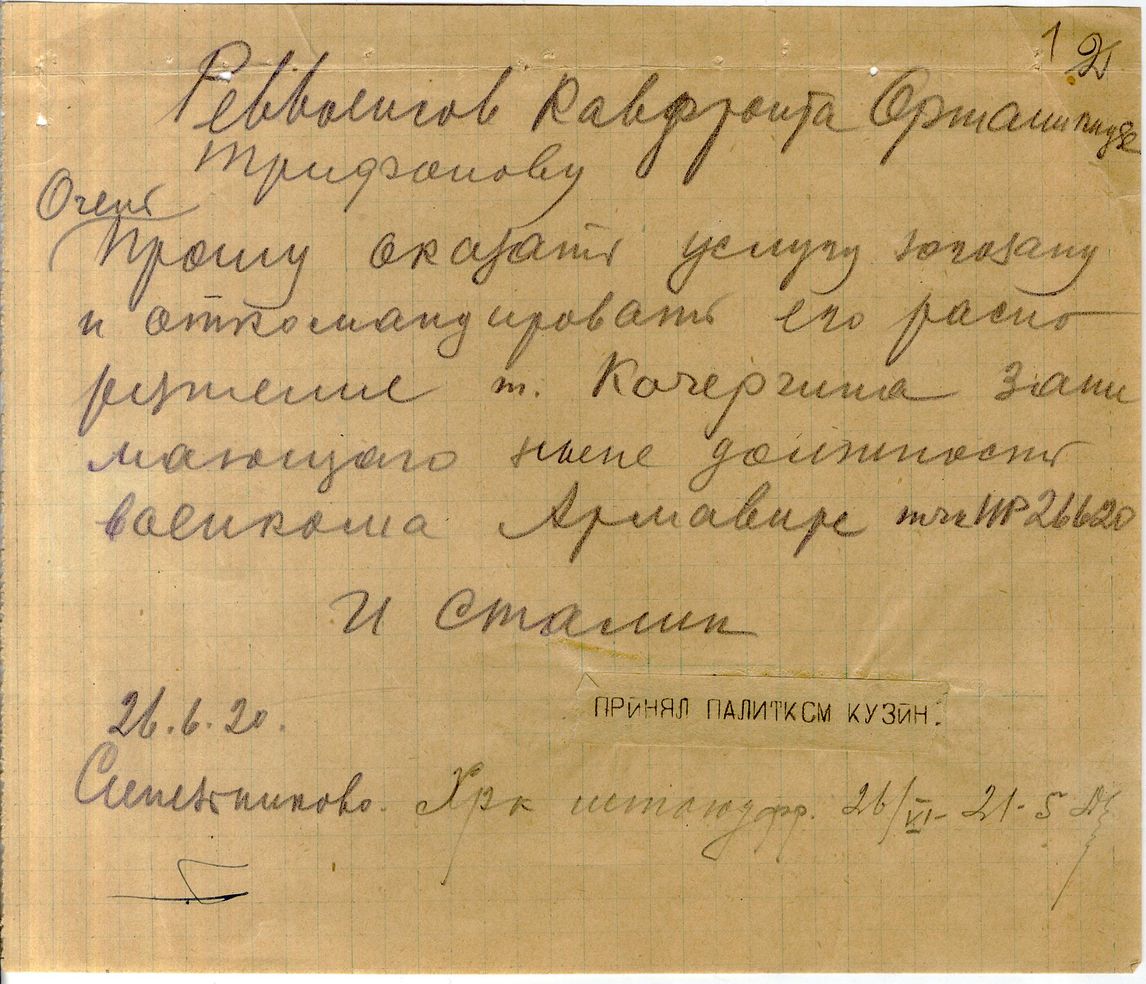 1 2
Реввоенсов Кавфронта Орджоникидзе
Трифонову
Очень
Прошу оказать услугу югозапу
и откомандировать его распо
ряжение т. Кочергина зани
мающего ныне должность
военкома Армавире тчк НР 26620
И Сталин
26.6.20.
ПРИНЯЛ ПАЛИТКСМ КУЗИН.
Синельниково. 26/VI - 21-5